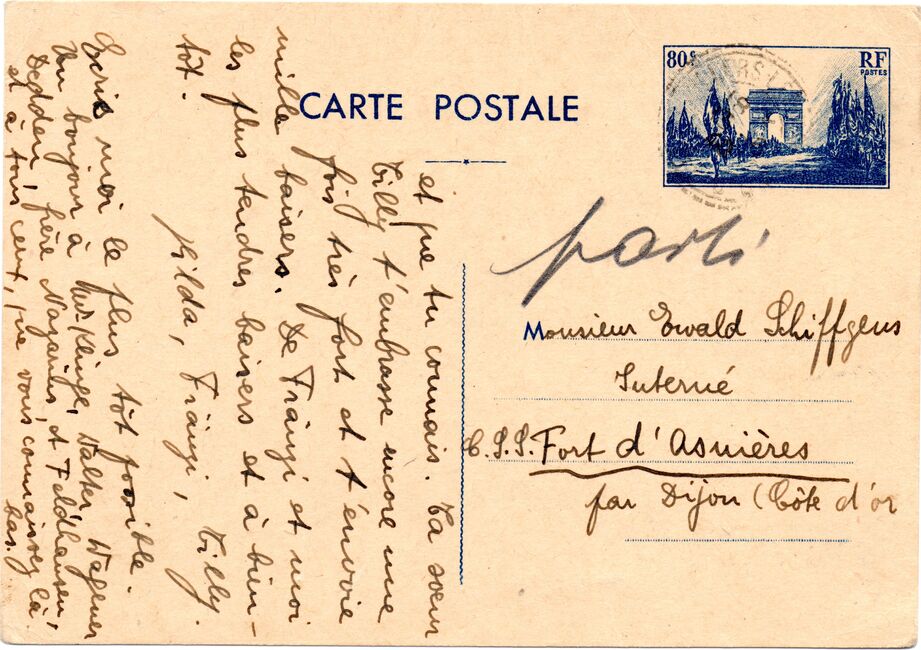 80 c
RF
POSTES
CARTE POSTALE
parti
Monsieur Ewald Schiffgens
Interné
C.S.S. Fort d'Asnières
par Dijon (Côte d'or
et que tu connais. Ta soeur
Tilly t'embrasse encore une
fois très fort et t'envoie
mille baisers. De Frängi et moi
les plus tendres baisers et à bien-
tôt.
Hilda, Frängi, Tilly.
Ecris moi le plus tôt possible.
Un bonjour à Klinge, Walter Wagener
Dedden, frère Nazarius, et Feldhausen,
et à tous ceux, que vous connaissez là
bas.